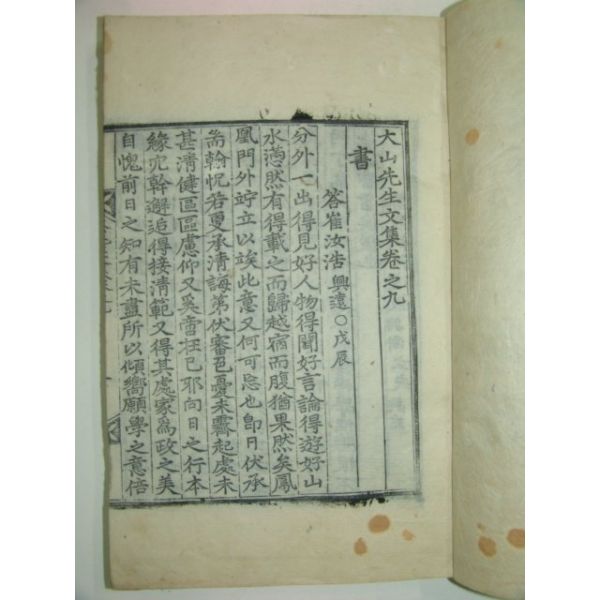 大山先生文集卷之九
書
答崔汝浩 興遠○戊辰
分外一出得見好人物得聞好言論得遊好山
水懣然有得載之而歸越宿而腹猶果然矣鳳
凰門外竚立以竢此意又何可忘也卽日伏承
耑翰怳若更承淸誨第伏審邑憂未霽起處未
甚淸健區區慮仰又奚啻在己耶向日之行本
緣穴幹邂逅得接淸範又得其處家爲政之美
自愧前日之知有未盡所以傾嚮願學之意倍